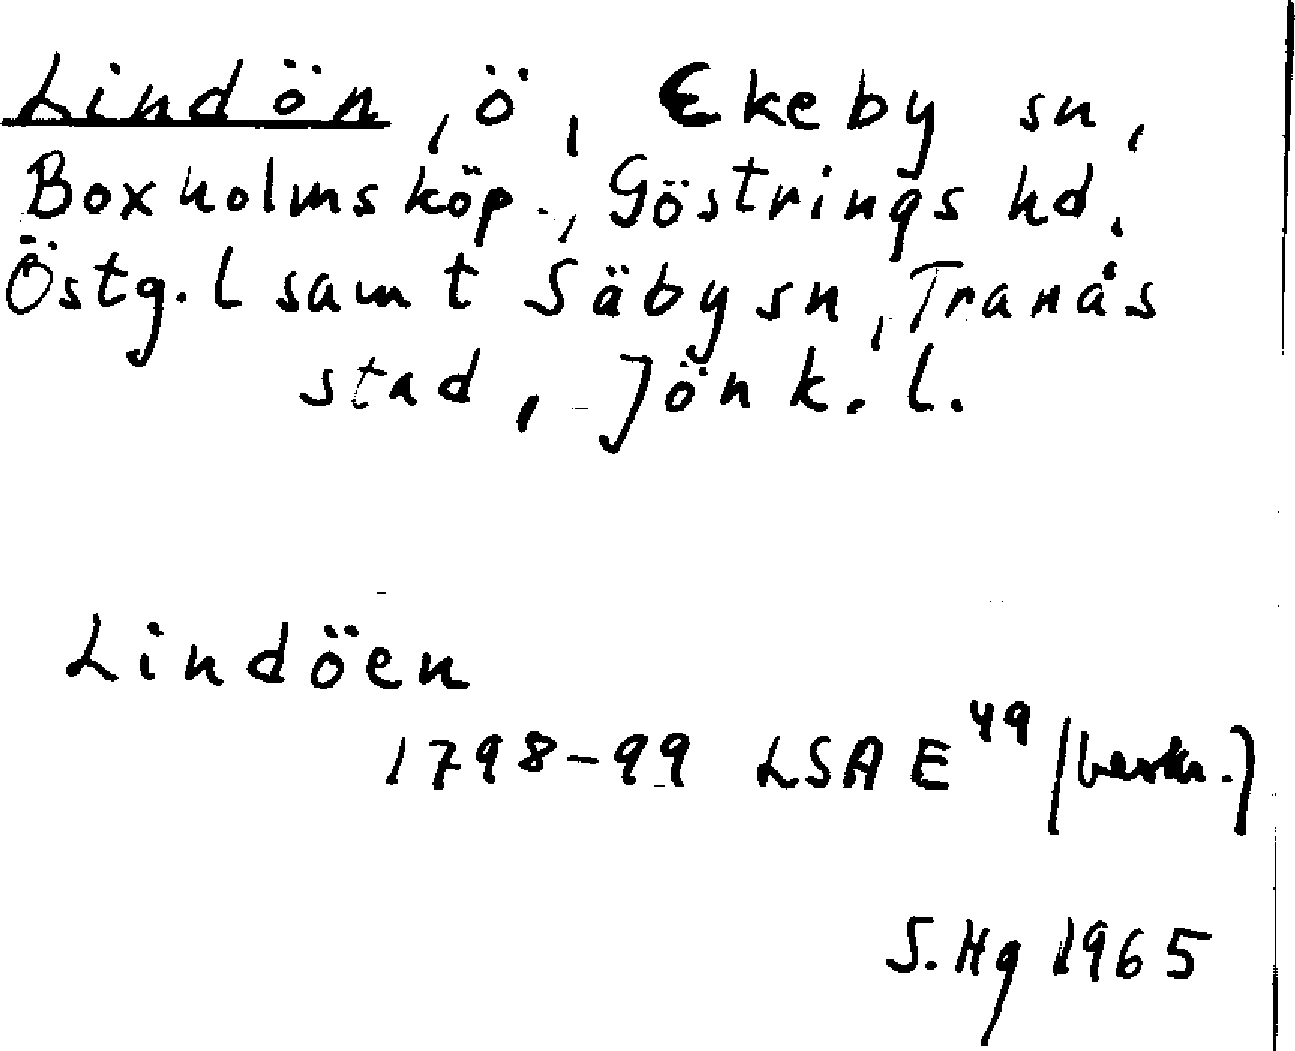 Lindön, ö, Ekeby sn,
Boxholms köp., Göstrings hd.
Östg. l samt Säby sn, Tranås
stad, Jönk. l.
Lindöen
1798-99 LSA E 49 (beskr.)
S. Hg 1965